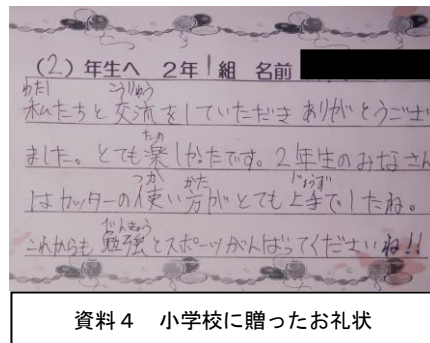 (2)年生へ 2年1組 名前
わたし こうりゅう
私たちと交流をしていただき ありがとうござい
たの
ました。とても楽しかったです。2年生のみなさん
つか かた じょうず
はカッターの使い方がとても上手でしたね。
べんきょう
これからも勉強とスポーツがんばってくださいね!!
資料4 小学校に贈ったお礼状